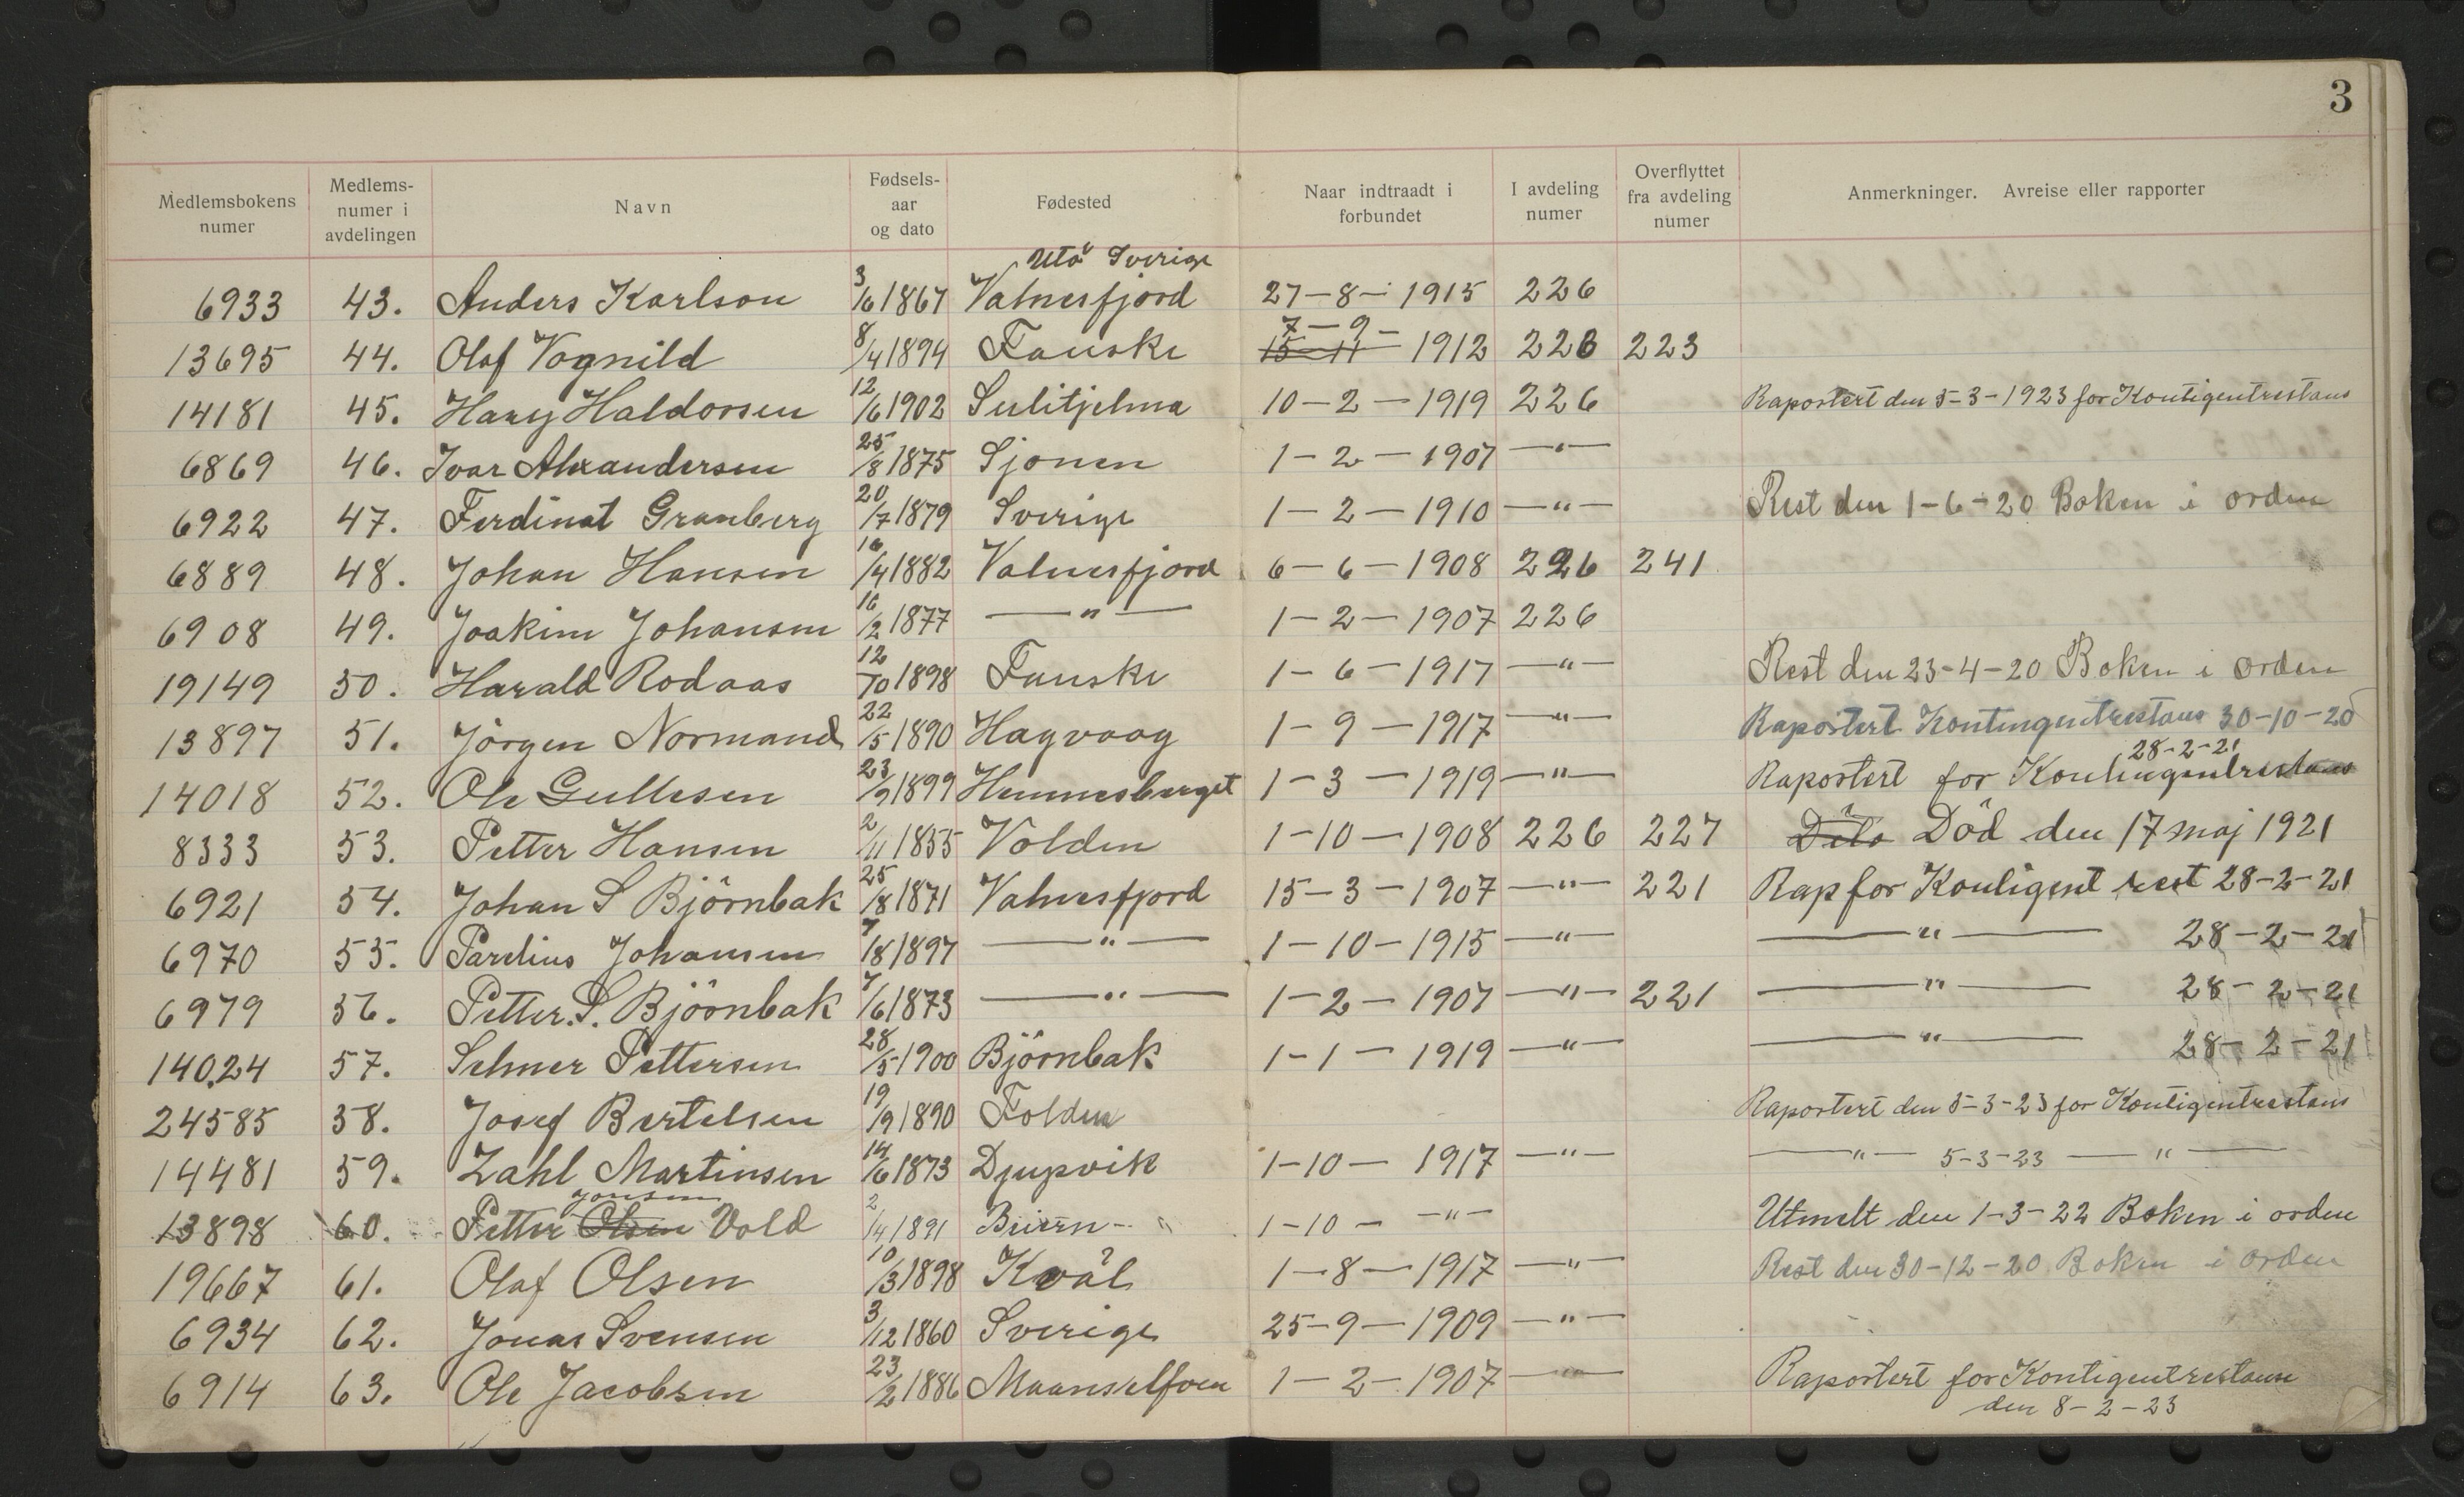 3
Medlemsbokens numer | Medlems-numer i avdelingen | Navn | Fødsels-aar og dato | Fødested | Naar indtraadt i forbundet | I avdeling numer | Overflyttet fra avdeling numer | Anmerkninger. Avreise eller rapporter
Utö Sverige
6933 43. Anders Karlson 3/6 1867 Valnesfjord 27-8-1915 226
7-9-
13695 44. Olaf Vognild 8/4 1894 Fauske 15-11 1912 226 223
14181 45. Harry Haldorsen 12/6 1902 Sulitjelma 10-2-1919 226 Raportert den 5-3-1923 for Kontigentrestans
6869 46. Ivar Alexandersen 25/8 1875 Sjonen 1-2-1907 -"-
6922 47. Ferdinat Granberg 20/7 1879 Sverige 1-2-1910 -"- Rest den 1-6-20 Boken i orden
6889 48. Johan Hansen 16/4 1882 Valnesfjord 6-6-1908 226 241
6908 49. Joakim Johansen 16/2 1877 -"- 1-2-1907 226
19149 50. Harald Rodaas 12/10 1898 Fauske 1-6-1917 -"- Rest den 23-4-20 Boken i orden
13897 51. Jörgen Normand 22/5 1890 Hagvaag 1-9-1917 -"- Raportert Kontingentrestans 30-10-20
28-2-21
14018 52. Ole Gullesen 23/9 1899 Hemnesberget 1-3-1919 -"- Raportert for Kontingentrestans
8333 53. Petter Hansen 2/11 1855 Volden 1-10-1908 226 227 Död den 17 maj 1921
6921 54. Johan S Björnbak 25/8 1871 Valnesfjord 15-3-1907 -"- 221 Rap for Kontigent rest 28-2-21
6970 55. Parelius Johansen 7/8 1897 -"- 1-10-1915 -"- -"- 28-2-21
6979 56. Petter. S. Björnbak 7/6 1873 -"- 1-2-1907 -"- 221 -"- 28-2-21
14024 57. Selmer Pettersen 28/5 1900 Björnbak 1-1-1919 -"- -"- 28-2-21
24585 58. Josef Bertelsen 19/9 1890 Folden Raportert den 5-3-23 for Kontigentrestans
14481 59. Zahl Martinsen 14/6 1873 Djupvik 1-10-1917 -"- -"- 5-3-23 -"-
Jonsen
13898 60. Petter Olsen Vold 2/4 1891 Beiern 1-10- -"- Utmelt den 1-3-22 Boken i orden
19667 61. Olaf Olsen 10/3 1898 Kvål 1-8-1917 -"- Rest den 30-12-20 Boken i orden
6934 62. Jonas Svensen 3/12 1860 Sverige 25-9-1909 -"-
6914 63. Ole Jacobsen 23/2 1886 Maanselfven 1-2-1907 -"- Raportert for Kontigentrestanse
den 8-2-23